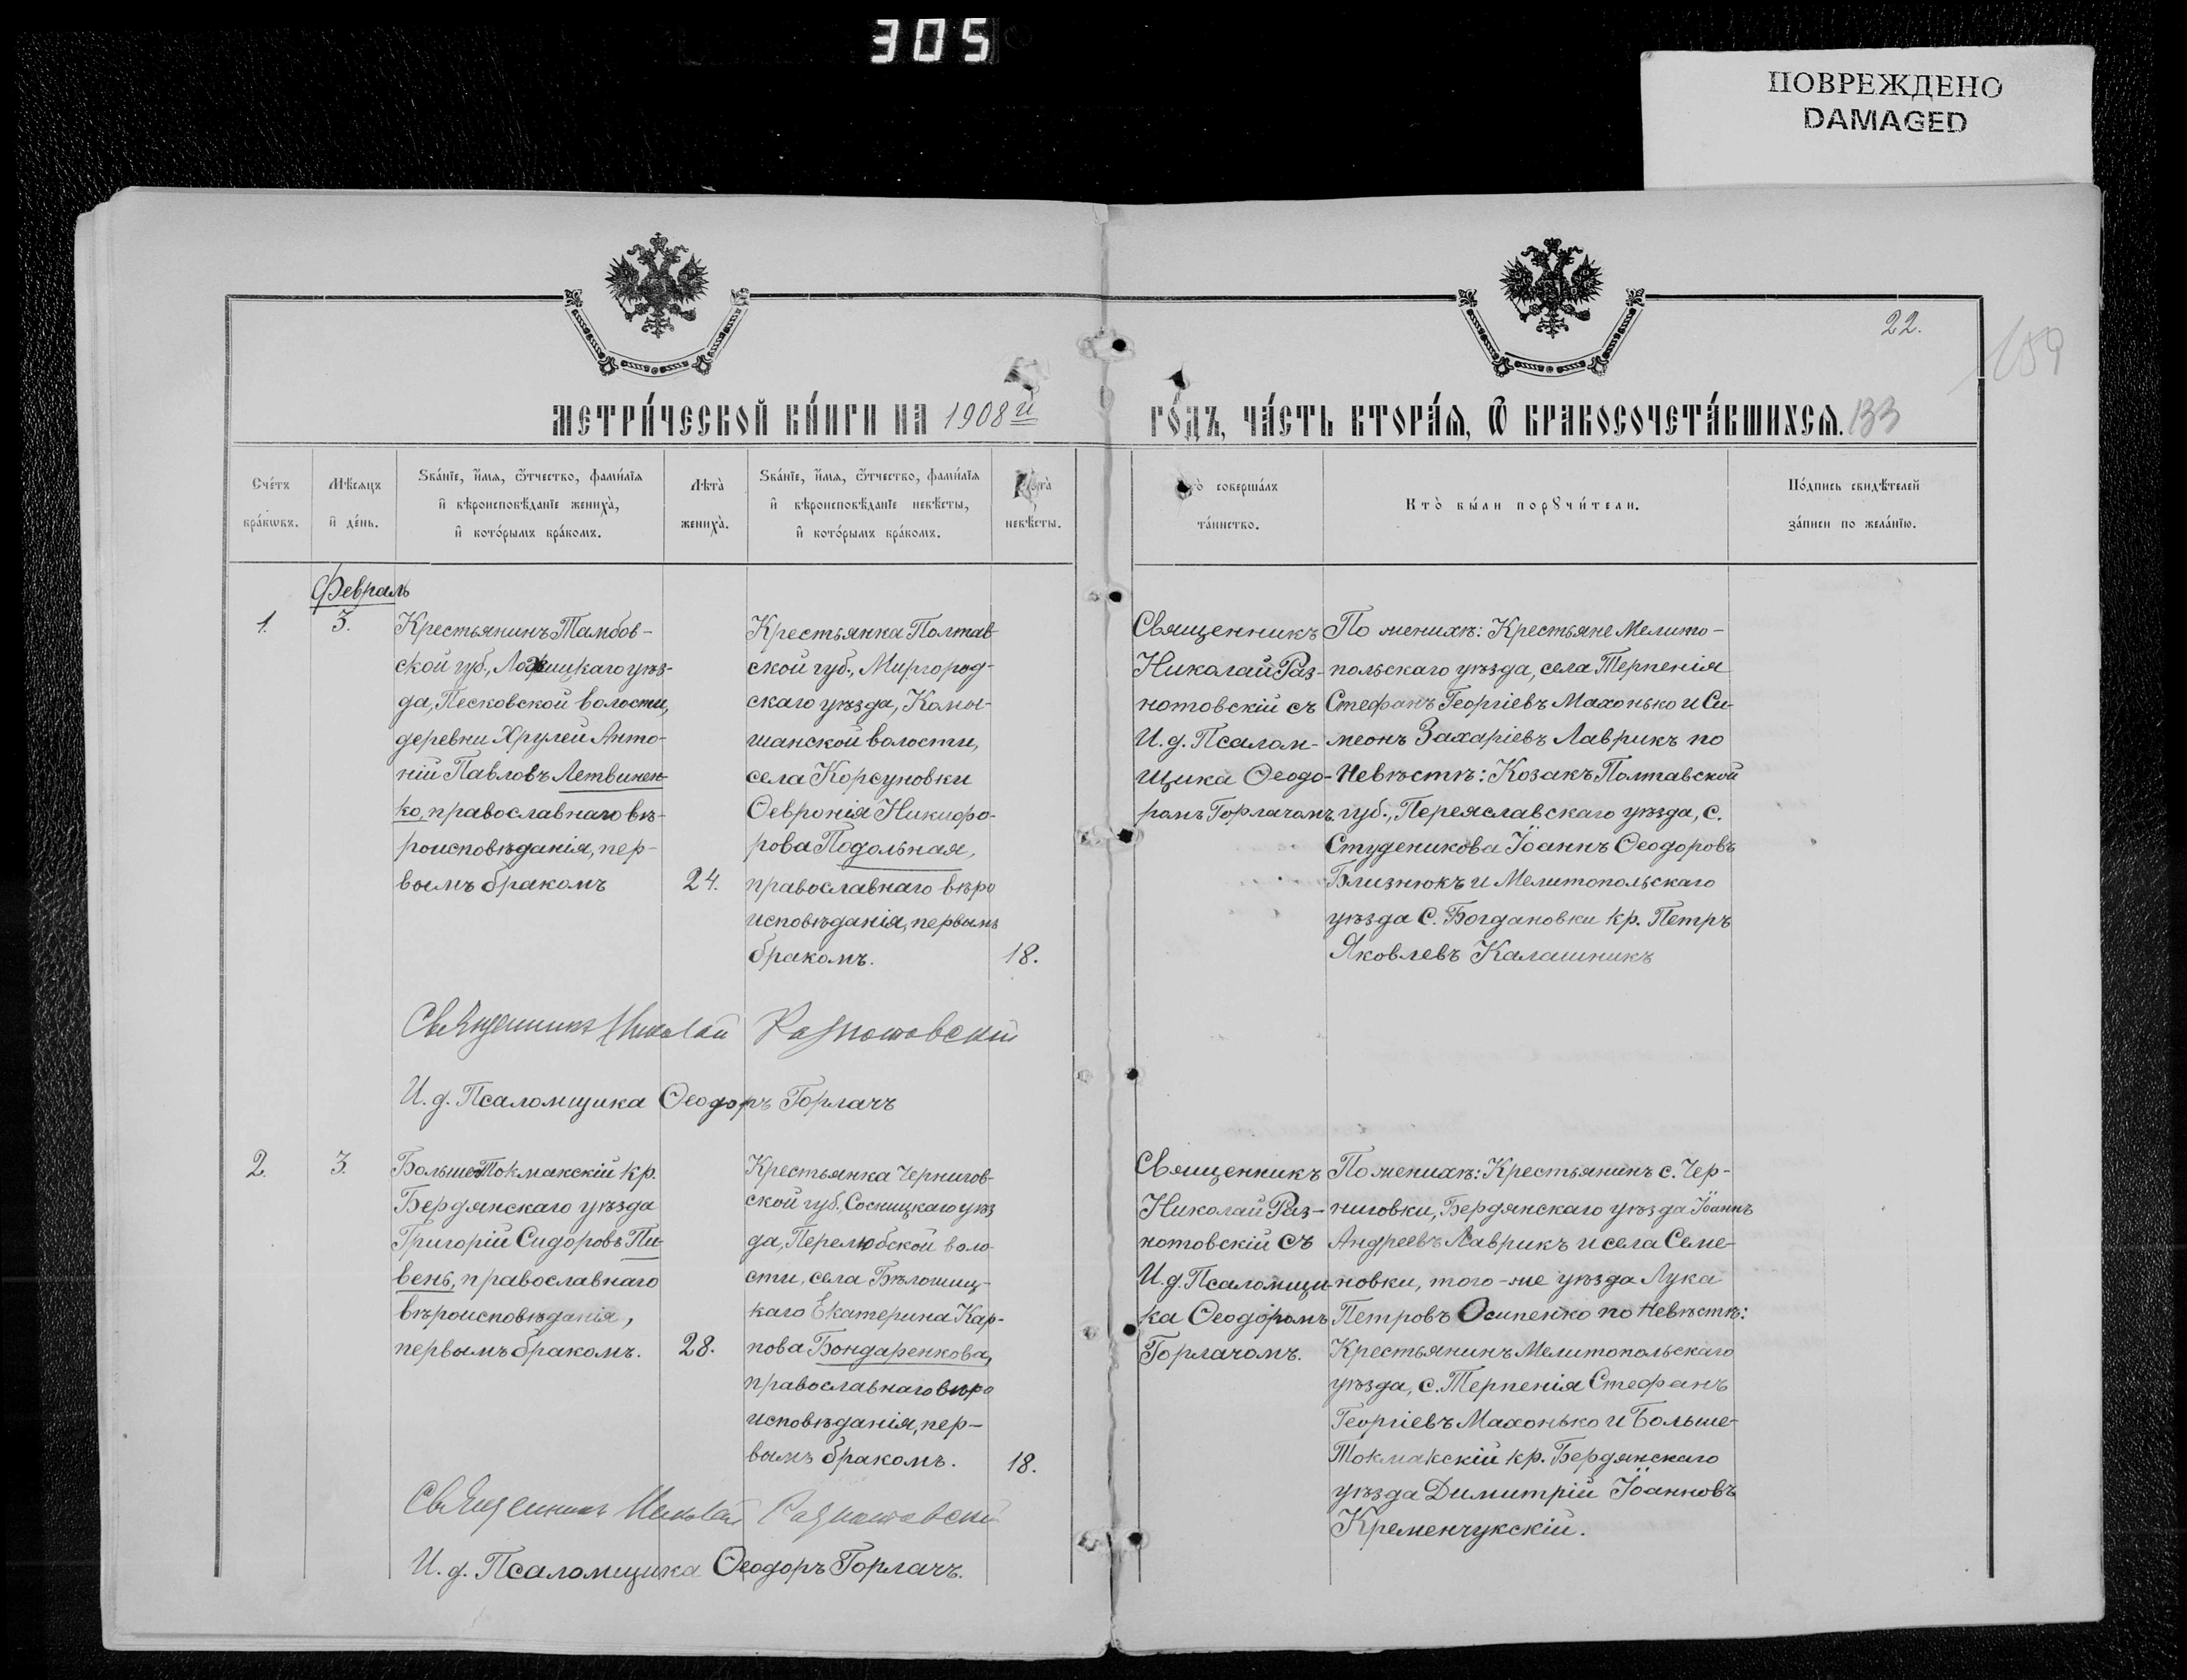 305
ПОВРЕЖДЕНО
DAMAGED
22.
159
МЕТРИ́ЧЕСКОЙ КНИ́ГИ НА 1908й
ГО́ДЪ, ЧА́СТЬ ВТОРА́Я, Ѿ БРАКОСОЧЕТА́ВШИХСЯ. 133
Сче́тъ бра́кѡвъ.
Мѣ́сяцъ и҆ де́нь.
Ѕва́нїе, и҆́мя, ѻ҆́тчество, фами́лїя и҆ вѣроисповѣ́данїе жениха̀, и҆ кото́рымъ бра́комъ.
Лѣта̀ жениха̀.
Ѕва́нїе, и҆́мя, ѻ҆́тчество, фами́лїя и҆ вѣроисповѣ́данїе невѣ́сты, и҆ кото́рымъ бра́комъ.
невѣ́сты.
соверша́лъ та́инство.
Кто̀ бы́ли порꙋчи́тели.
По́дпись свидѣ́телей за́писи по жела́нїю.
Февраль
1.
3.
Крестьянинъ Тамбов-
ской губ., Лохвицкаго уѣз-
да, Песковской волости,
деревни Хрулей Анто-
ній Павловъ Летвинен-
ко, православнаго вѣ-
роисповѣданія, пер-
вымъ бракомъ
24.
Крестьянка Полтав-
ской губ., Миргород-
скаго уѣзда, Комы-
шанской волости,
села Корсуновки
Ѳевронія Никифо-
рова Подольная,
православнаго вѣро
исповѣданія, первымъ
бракомъ.
18.
Священникъ
Николай Раз-
нотовскій съ
И. д. Псалом-
щика Ѳеодо-
ромъ Горлачомъ.
По женихѣ: Крестьяне Мелито-
польскаго уѣзда, села Терпенія
Стефанъ Георгіевъ Махонько и Си-
меонъ Захаріевъ Лаврикъ по
Невѣстѣ: Козакъ Полтавской
губ., Переяславскаго уѣзда, с.
Студеникова Іоаннъ Ѳеодоровъ
Близнюкъ и Мелитопольскаго
уѣзда с. Богдановки кр. Петръ
Яковлевъ Калашникъ
Священникъ Николай Разнотовскій
И. д. Псаломщика Ѳеодоръ Горлачъ
2.
3.
Больше-Токмакскій кр.
Бердянскаго уѣзда
Григорій Сидоровъ Пи-
вень, православнаго
вѣроисповѣданія,
первымъ бракомъ.
28.
Крестьянка Чернигов-
ской губ., Сосницкаго уѣз
да, Перелюбской воло-
сти, села Бѣлошиц-
каго Екатерина Кар-
пова Бондаренкова,
православнаго вѣро
исповѣданія, пер-
вымъ бракомъ.
18.
Священникъ
Николай Раз-
нотовскій съ
И. д. Псаломщи-
ка Ѳеодоромъ
Горлачомъ.
По женихѣ: Крестьянинъ с. Чер-
ниговки, Бердянскаго уѣзда Іоаннъ
Андреевъ Лаврикъ и села Семе-
новки, того-же уѣзда Лука
Петровъ Осипенко по Невѣстѣ:
Крестьянинъ Мелитопольскаго
уѣзда, с. Терпенія Стефанъ
Георгіевъ Махонько и Больше-
Токмакскій кр. Бердянскаго
уѣзда Димитрій Іоанновъ
Кременчукскій.
Священникъ Николай Разнотовскій
И. д. Псаломщика Ѳеодоръ Горлачъ.